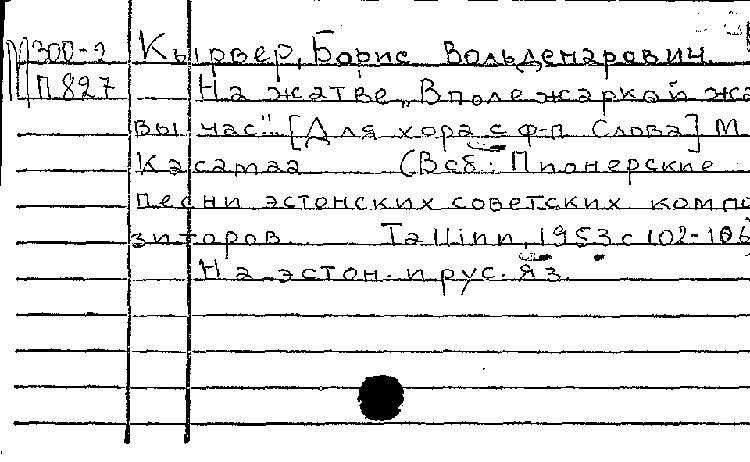 М300-2 Кырвер, Борис Вольдемарович.
П827 На жатве „В поле жаркой жа
вы час" [Для хора с ф-п. Слова] М
Касамаа (В сб: Пионерские
песни эстонских советских компо
зиторов. Tallinn, 1953 с 102-106)
На эстон. и рус. яз.